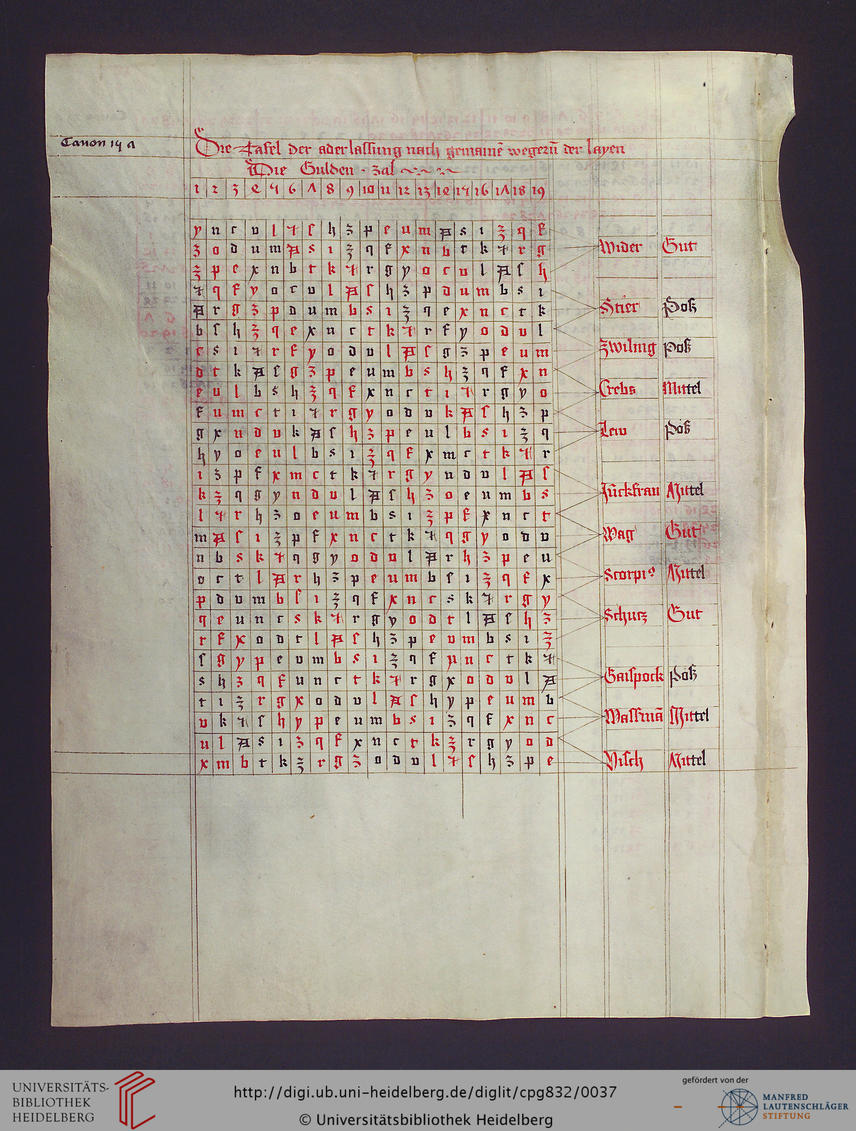 Canon 14 a
Die Tafel der aderlassung nach gemaine wegezū der layen
Die Gulden zal
1 2 3 4 5 6 7 8 9 10 11 12 13 14 15 16 17 18 19
y n c v l ⁊ ſ h ʒ p e u m A s i ʒ q f
ʒ o d u m A s i ʒ q f x n b t k ⁊ r g
ʒ p e x n b t k ⁊ r g y o c v l A ſ h
⁊ q f y o c v l A ſ h ʒ p d u m b s i
A r g ʒ p d u m b s i ʒ q e x n c t k
b ſ h ʒ q e x n c t k ⁊ r f y o d v l
c s i ⁊ r f y o d v l A ſ g ʒ p e u m
d t k A ſ g ʒ p e u m b s h ʒ q f x n
e v l b s h ʒ q f x n c t i ⁊ r g y o
f u m c t i ⁊ r g y o d v k A ſ h ʒ p
g x n d v k A ſ h ʒ p e u l b s i ʒ q
h y o e u l b s i ʒ q f x m c t k ⁊ r
i ʒ p f x m c t k ⁊ r g y n d v l A ſ
k ʒ q g y n d v l A ſ h ʒ o e u m b s
l ⁊ r h ʒ o e u m b s i ʒ p f x n c t
m A ſ i ʒ p f x n c t k ⁊ q g y o d v
n b s k ⁊ q g y o d v l A r h ʒ p e u
o c t l A r h ʒ p e u m b ſ i ʒ q f x
p d v m b ſ i ʒ q f x n c s k ⁊ r g y
q e u n c s k ⁊ r g y o d t l A ſ h ʒ
r f x o d t l A ſ h ʒ p e v m b s i ʒ
ſ g y p e v m b s i ʒ q f u n c t k ⁊
s h ʒ q f u n c t k ⁊ r g x o d v l A
t i ʒ r g x o d v l A ſ h y p e u m b
v k ⁊ ſ h y p e u m b s i ʒ q f x n c
u l A s i ʒ q f x n c t k ʒ r g y o d
x m b t k ʒ r g ʒ o d v l ⁊ ſ h ʒ p e
Wider Gut
Stier Poß
Zwiling Poß
Crebs Mittel
Lew Poß
Jūckfrau Mittel
Wag Gut
Scorpiꝰ Mittel
Schucz Gut
Gaispock Poß
Wassmā Mittel
Visch Mittel
UNIVERSITÄTS-
BIBLIOTHEK
HEIDELBERG
http://digi.ub.uni-heidelberg.de/diglit/cpg832/0037
© Universitätsbibliothek Heidelberg
gefördert von der
MANFRED
LAUTENSCHLÄGER
STIFTUNG